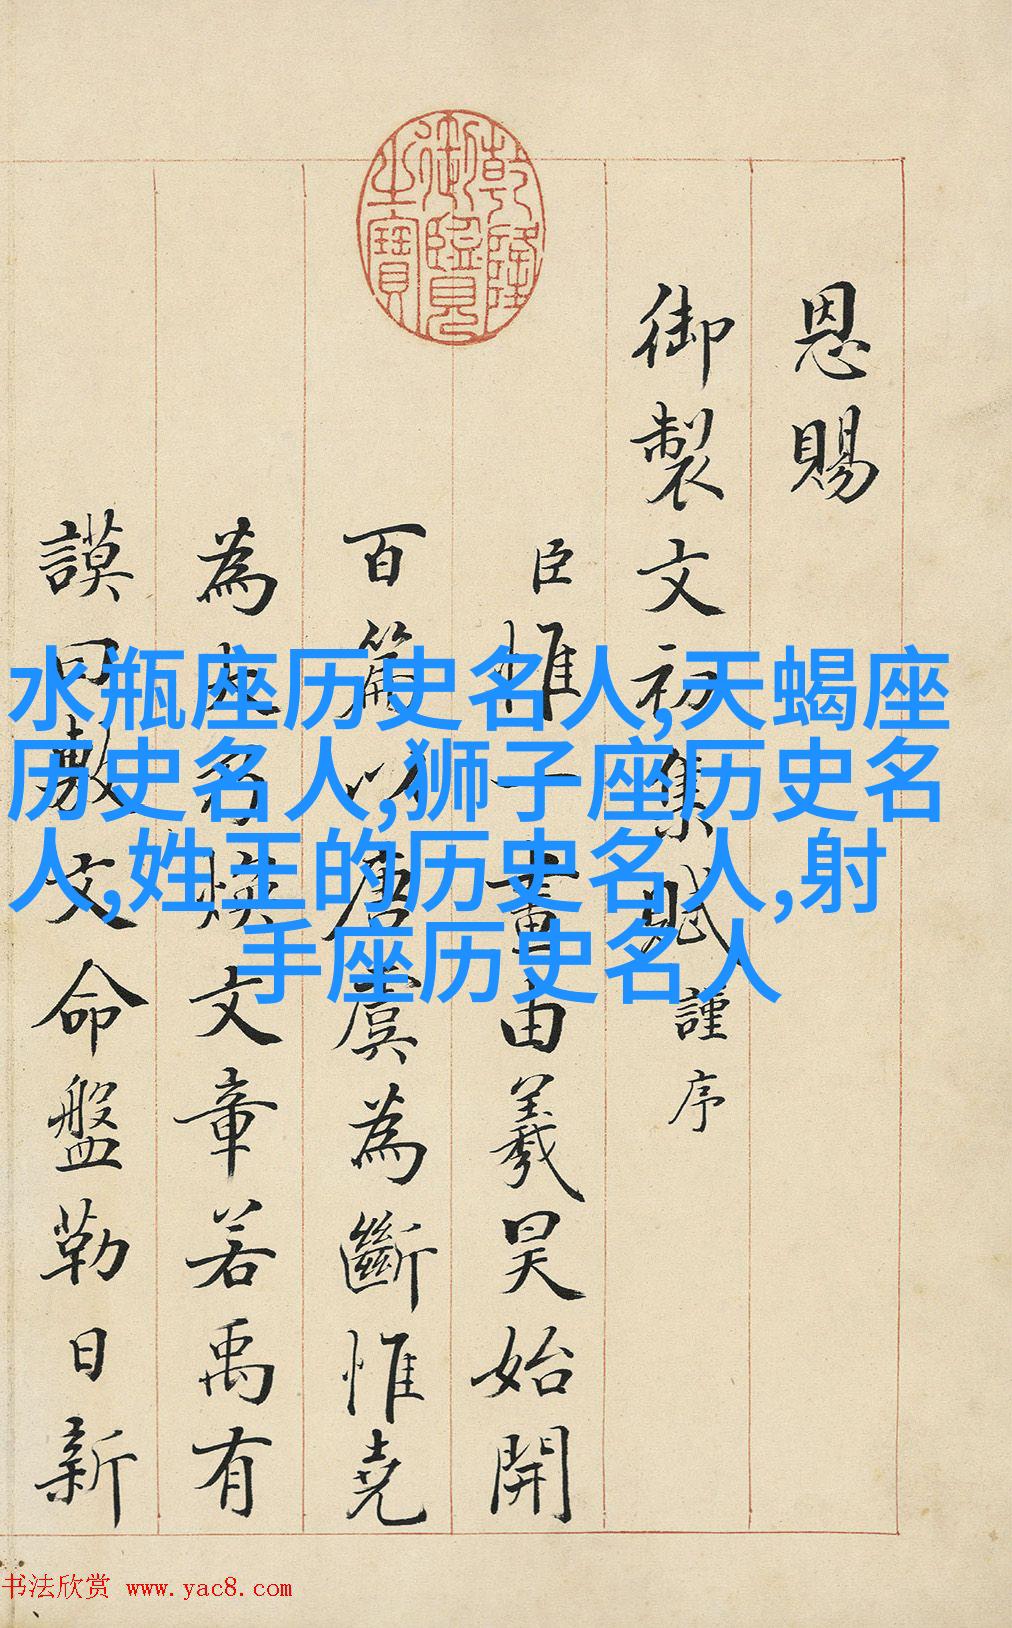 恩賜
御製文初集賦謹序
臣惟一畫由羲昊始開
百篇以唐虞為斷惟堯
為大名煥文章若禹有
謨曰敷文命盤勒日新
乾隆御覽之寶
水瓶座历史名人,天蝎座
历史名人,狮子座历史名
人,姓王的历史名人,射
手座历史名人
书法欣赏 www.yac8.com